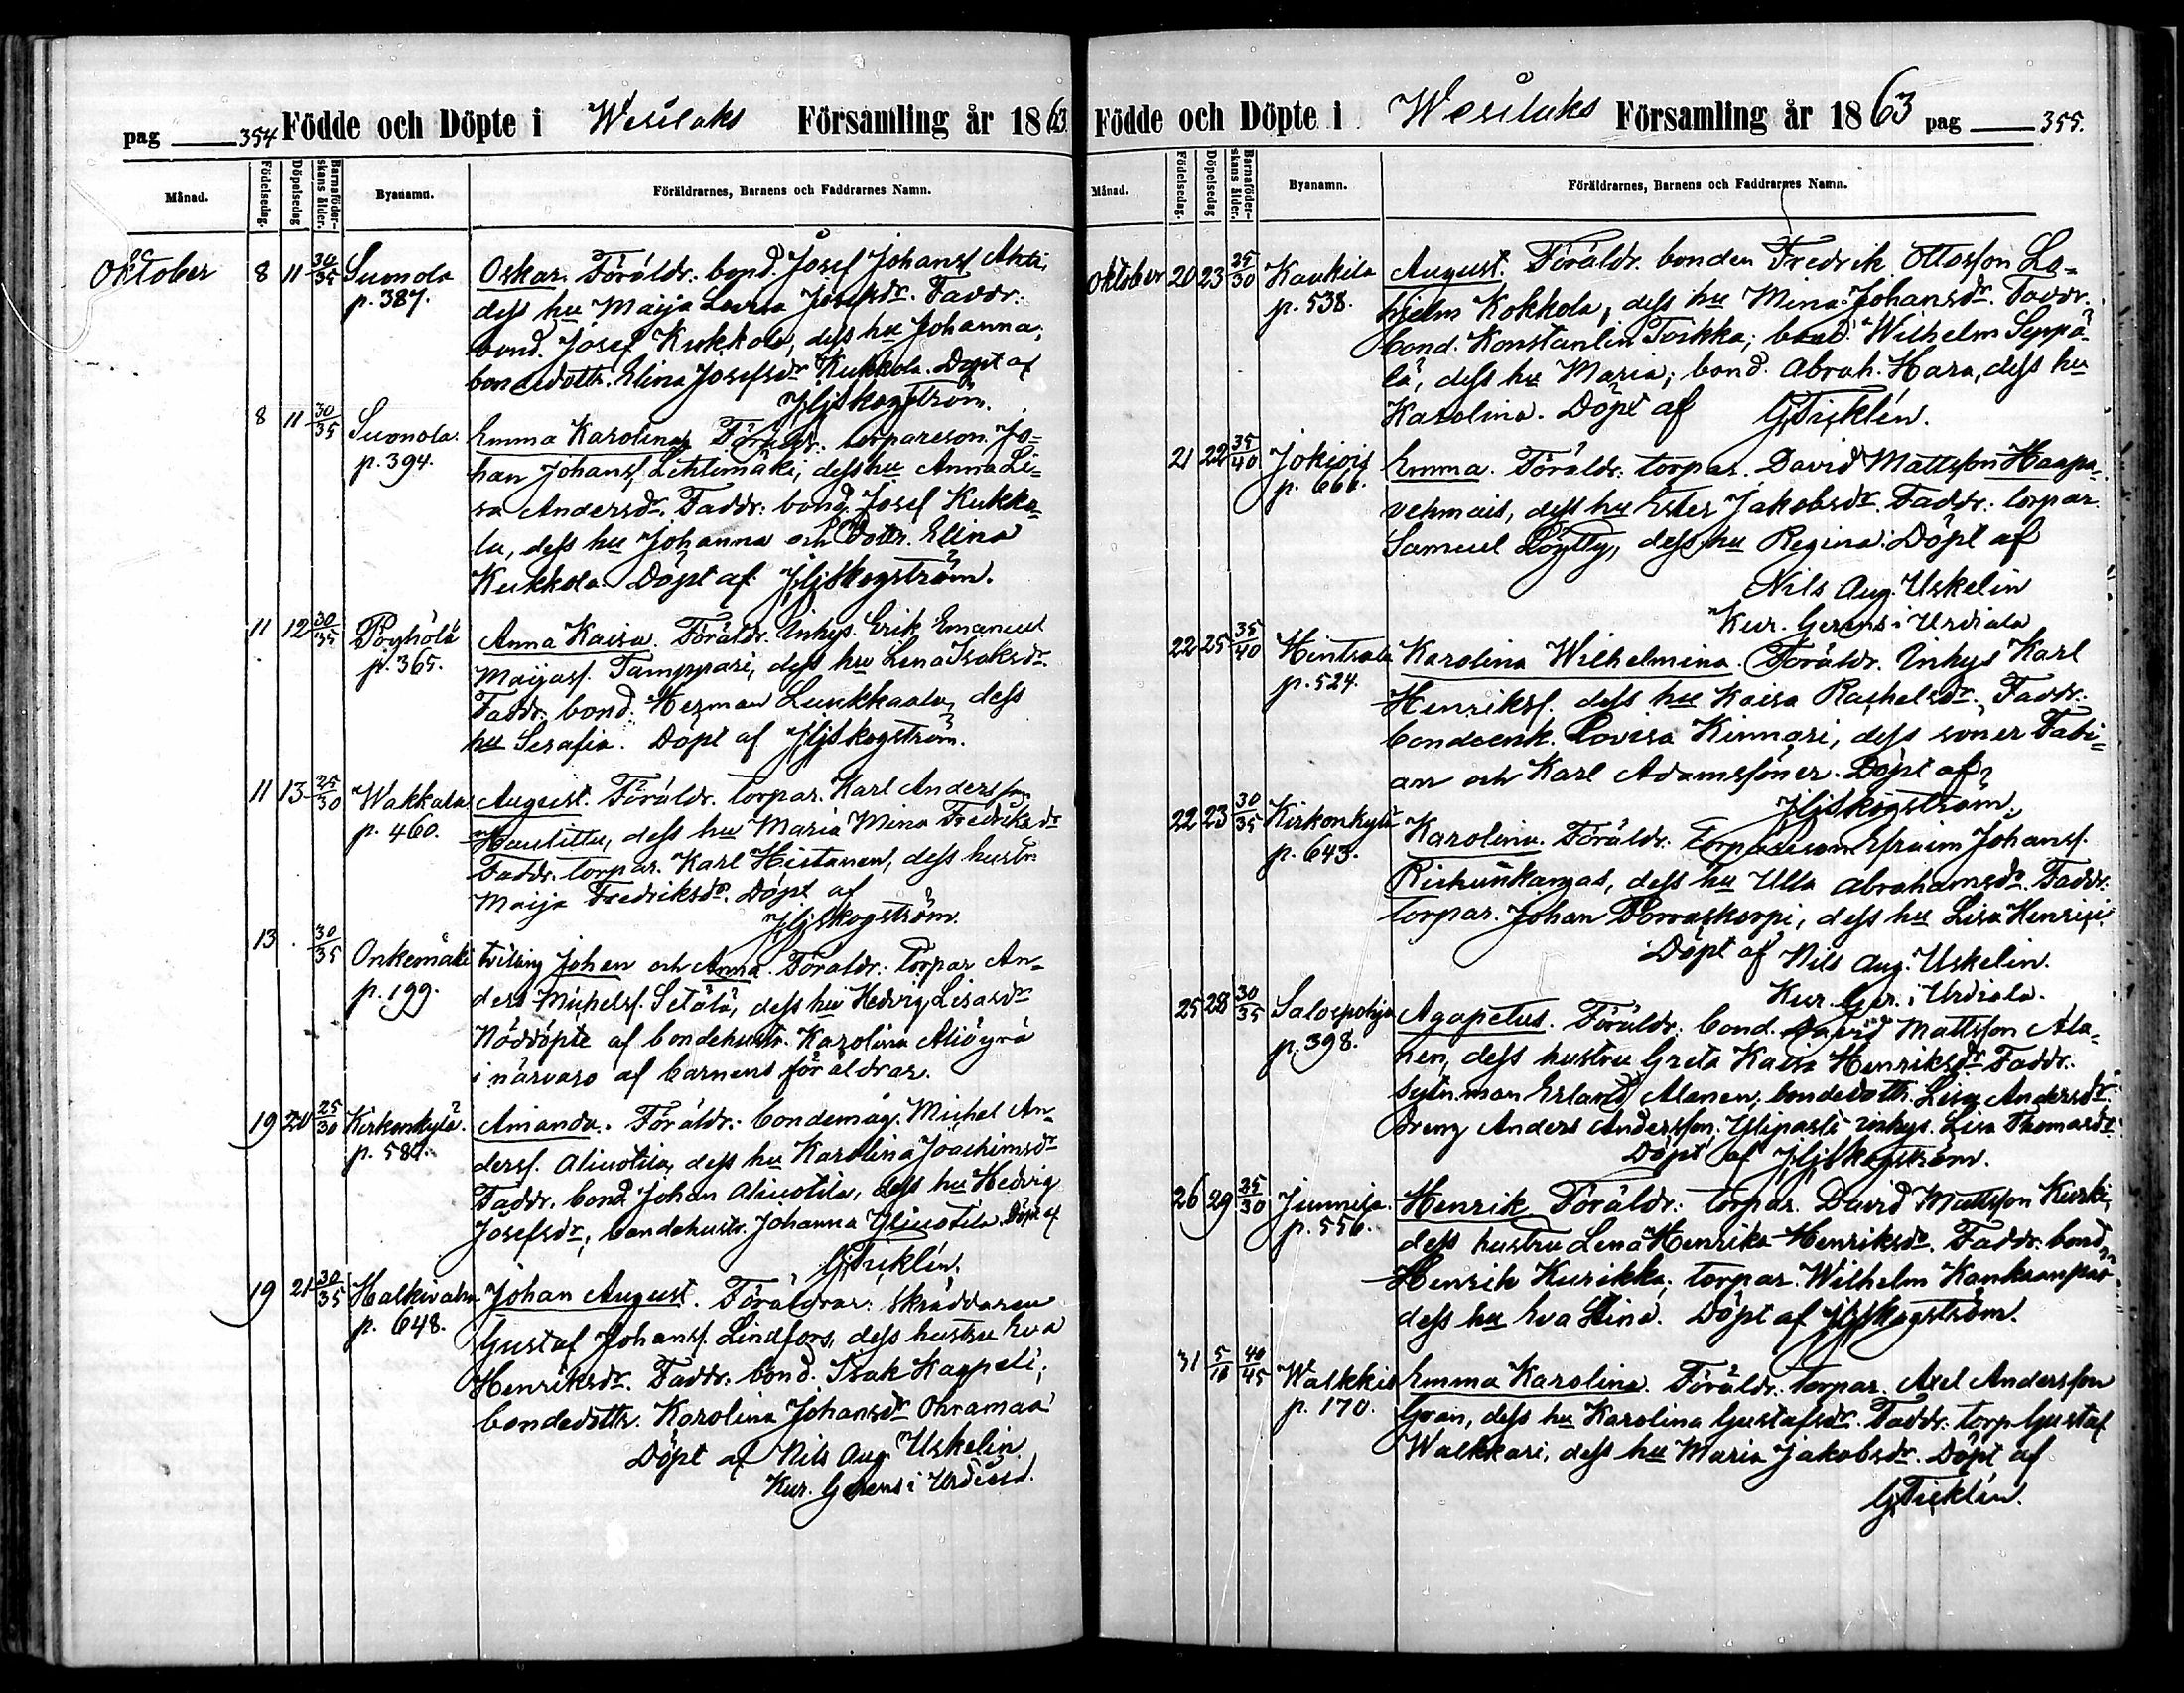 pag 354 Födde och Döpte i Wesilaks Församling år 1863
Månad. Födelsedag. Döpelsedag Barnaföderskans ålder. Byanamn. Föräldrarnes, Barnens och Faddrarnes Namn.
Oktober 8 11 30/35 Suonola Oskar. Föräldr. bond. Josef Johansf Ahti,
p. 387. dess hu Maija Lovisa Josefsdr. Faddr.
bond. Josef Kukkola, dess hu Johanna;
bondedottr. Elina Josefsdr Kukkola. Döpt af
Skogström.
8 11 30/35 Suonola. Emma Karolina. Föräldr. torpareson Jo=
p. 394. han Johansf. Lehtimäki, dess hu Anna Li=
sa Andersdr. Faddr: bond. Josef Kukko=
la, dess hu Johanna och dottr. Elina
Kukkola. Döpt af Skogström.
11 12 30/35 Pöyhölä Anna Kaisa. Föräldr. Inhys. Erik Emanuel
p. 365. Maijasf. Tamppari, dess hu Lena Isaksdr.
Faddr. bond. Herman Luukkaala, dess
hu Serafia. Döpt af Skogström.
11 13 25/30 Wakkala August. Föräldr. torpar. Karl Andersson
p. 460. Haulittu, dess hu Maria Mina Fredriksdr
Faddr. torpar. Karl Hietanen, dess hustr.
Maija Fredriksdr. Döpt af
Skogström.
13 30/35 Onkemäki tvilling Johan och Anna. Föräldr.: Torpar An=
p. 199. ders Michelsf. Setälä, dess hu Hedvig Lisasdr
Nöddöpte af bondehustr. Karolina
i närvaro af barnens föräldrar.
19 20 25/30 Kirkonkylä. Amanda. Föräldr. bondemåg. Michel An=
p. 584. dersf. Aliuotila, dess hu Karolina Joachimsdr
Faddr. bond. Johan Aliuotila, dess hu Hedvig
Josefsdr, bondehustr. Johanna Yliuotila. Döpt af
G. Ticklén.
19 21 30/35 Halkivaha Johan August. Föräldrar: Skräddaren
p. 648. Gustaf Johansf. Lindfors, dess hustru Eva
Henriksdr. Faddr. bond. Isak Kappeli;
bondedottr. Karolina Johansdr Ohramaa
Döpt af Nils Aug. Uskelin
Kur. Gerens i Urdiala.
Födde och Döpte i Wesilaks Församling år 1863 pag 355.
Månad. Födelsedag. Döpelsedag Barnaföderskans ålder. Byanamn. Föräldrarnes, Barnens och Faddrarnes Namn.
Oktober 20 23 25/30 Kaukila August. Föräldr. bonden Fredrik Ottosson La=
p. 538. hjelm Kokkola, dess hu Mina Johansdr. Faddr.
bond. Konstantin Toikka; bond. Wilhelm Seppä=
lä, dess hu Maria; bond. Abrah. Hara, dess hu
Karolina. Döpt af G. Ticklén.
21 22 35/40 Jokiois Emma. Föräldr. torpar. David Mattsson Haapa=
p. 666. vehmais, dess hu Ester Jakobsdr. Faddr. torpar.
Samuel Löytty, dess hu Regina. Döpt af
Nils Aug. Uskelin
Kur. Gerens i Urdiala
22 25 35/40 Hintsala Karolina Wilhelmina. Föräldr. Inhys Karl
p. 524. Henriksf. dess hu Kaisa Rachelsdr. Faddr.
bondeenk. Lovisa Kinnari, dess söner Fabi=
an och Karl Adamssöner. Döpt af
Skogström.
22 23 30/35 Kirkonkylä Karolina. Föräldr. Torpareson Efraim Johansf.
p. 643. Riihunkangas, dess hu Ulla Abrahamsdr. Faddr.
torpar. Johan Porraskorpi, dess hu Lisa
Döpt af Nils Aug. Uskelin.
Kur. Ger. i Urdiala.
25 28 30/35 Salospohja Agapetus. Föräldr. bond. David Mattsson Ala=
p. 398. nen, dess hustru Greta Kaisa Henriksdr. Faddr.
sytn. man Erland Alanen; bondedottr. Lisa Andersdr.
Dreng Anders Andersson Ylipasti inhys. Lisa Thomasdr
Döpt af Skogström.
26 29 25/30 Junnila. Henrik Föräldr. torpar. David Mattsson Kurki,
p. 556. dess hustru Lena Henrika Henriksdr. Faddr. bond
Henrik Kurikka; torpar. Wilhelm Kankaanpää
dess hu Eva Stina. Döpt af Skogström.
31 5/10 40/45 Walkkis Emma Karolina. Föräldr. torpar. Axel Andersson
p. 170. Gran, dess hu Karolina Gustafsdr. Faddr. torp Gustaf
Walkkari, dess hu Maria Jakobsdr. Döpt af
G. Ticklén.